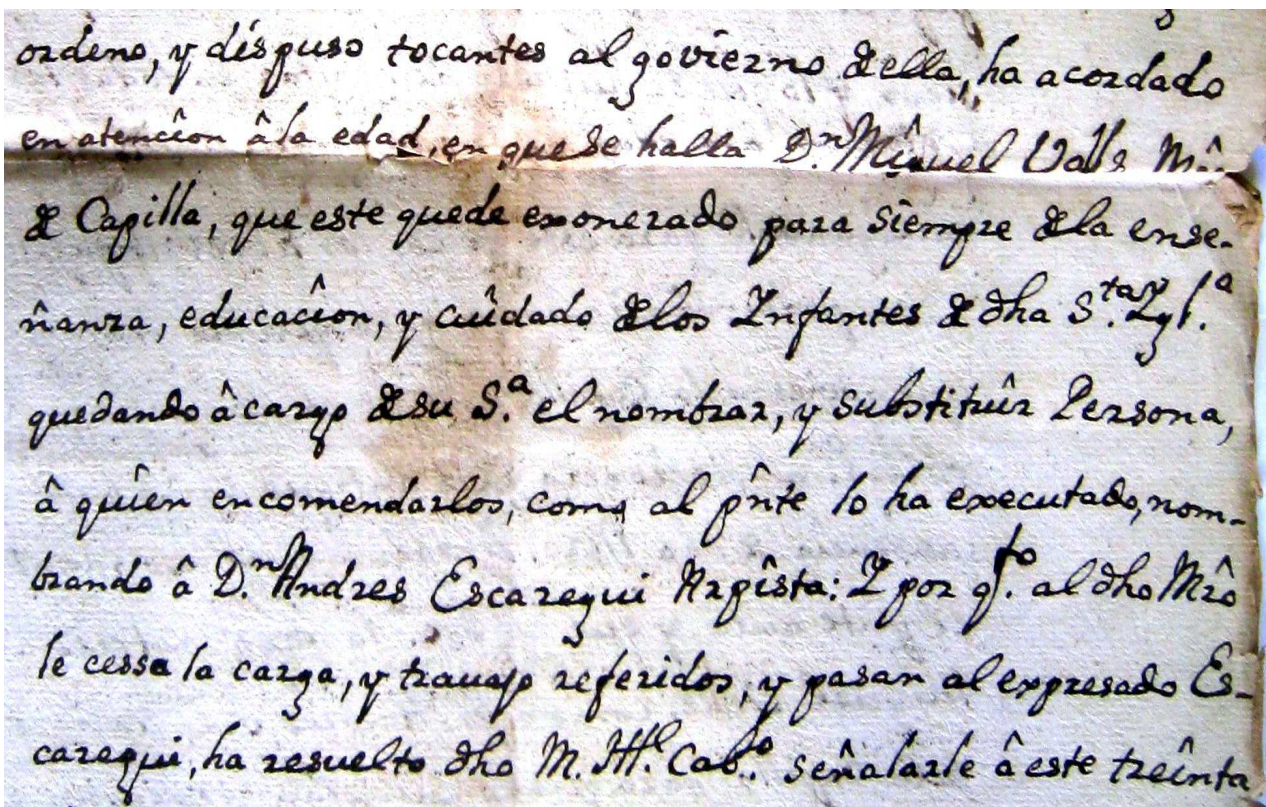 ordeno, y dispuso tocantes al govierno della, ha acordado
en atencîon â la edad, en que se halla D.ⁿ Mîguel Valls Mrô
de Capilla, que este quede exonerado para siempre dela ense-
ñanza, educacîon, y cuîdado delos Infantes de dha S.ta Ygl.ª
quedando â cargo desu S.ª el nombrar, y substituîr Persona,
â quîen encomendarlos, como al pñte lo ha executado, nom-
brando â D.ⁿ Andres Escaregui Arpîsta: Y por q.to al dho Mrô
le cessa la carga, y trauajo referidos, y pasan al expresado Es-
caregui, ha resuelto dho M. Ill.e Cab.º señalarle â este treînta